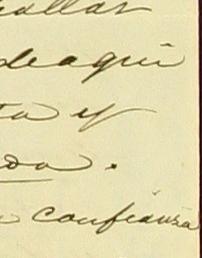 hallar
de aquí
ta y
do.
a confianza